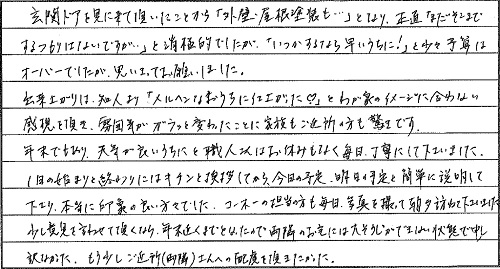 玄関ドアを見に来て頂いたことから「外壁・屋根塗装も…」となり、正直「まだそこまで
するつもりはないですが…」と消極的でしたが、「いつかするなら早いうちに!」と少々予算は
オーバーでしたが、思い切ってお願いしました。
出来上がりは、知人より「メルヘンなおうちに仕上がった♡」とわが家のイメージに合わない
感想を頂き、雰囲気がガラッと変わったことに家族もご近所の方も驚きです。
年末でもあり、天気が良いうちにと職人さんはお休みもなく毎日、丁寧にして下さいました。
1日の始まりと終わりにはキチンと挨拶してから、今日の予定、明日の予定と簡単に説明して
下さり、本当に印象の良い方々でした。コーネーの担当の方も毎日、写真を撮って頑り訪ねて下さいました
少し意見を言わせて頂くなら、年末近くまでとなったので両隣のお宅には大そうじができない状態で申し
訳なかった。もう少しご近所(両隣)さんへの配慮を頂きたかった。